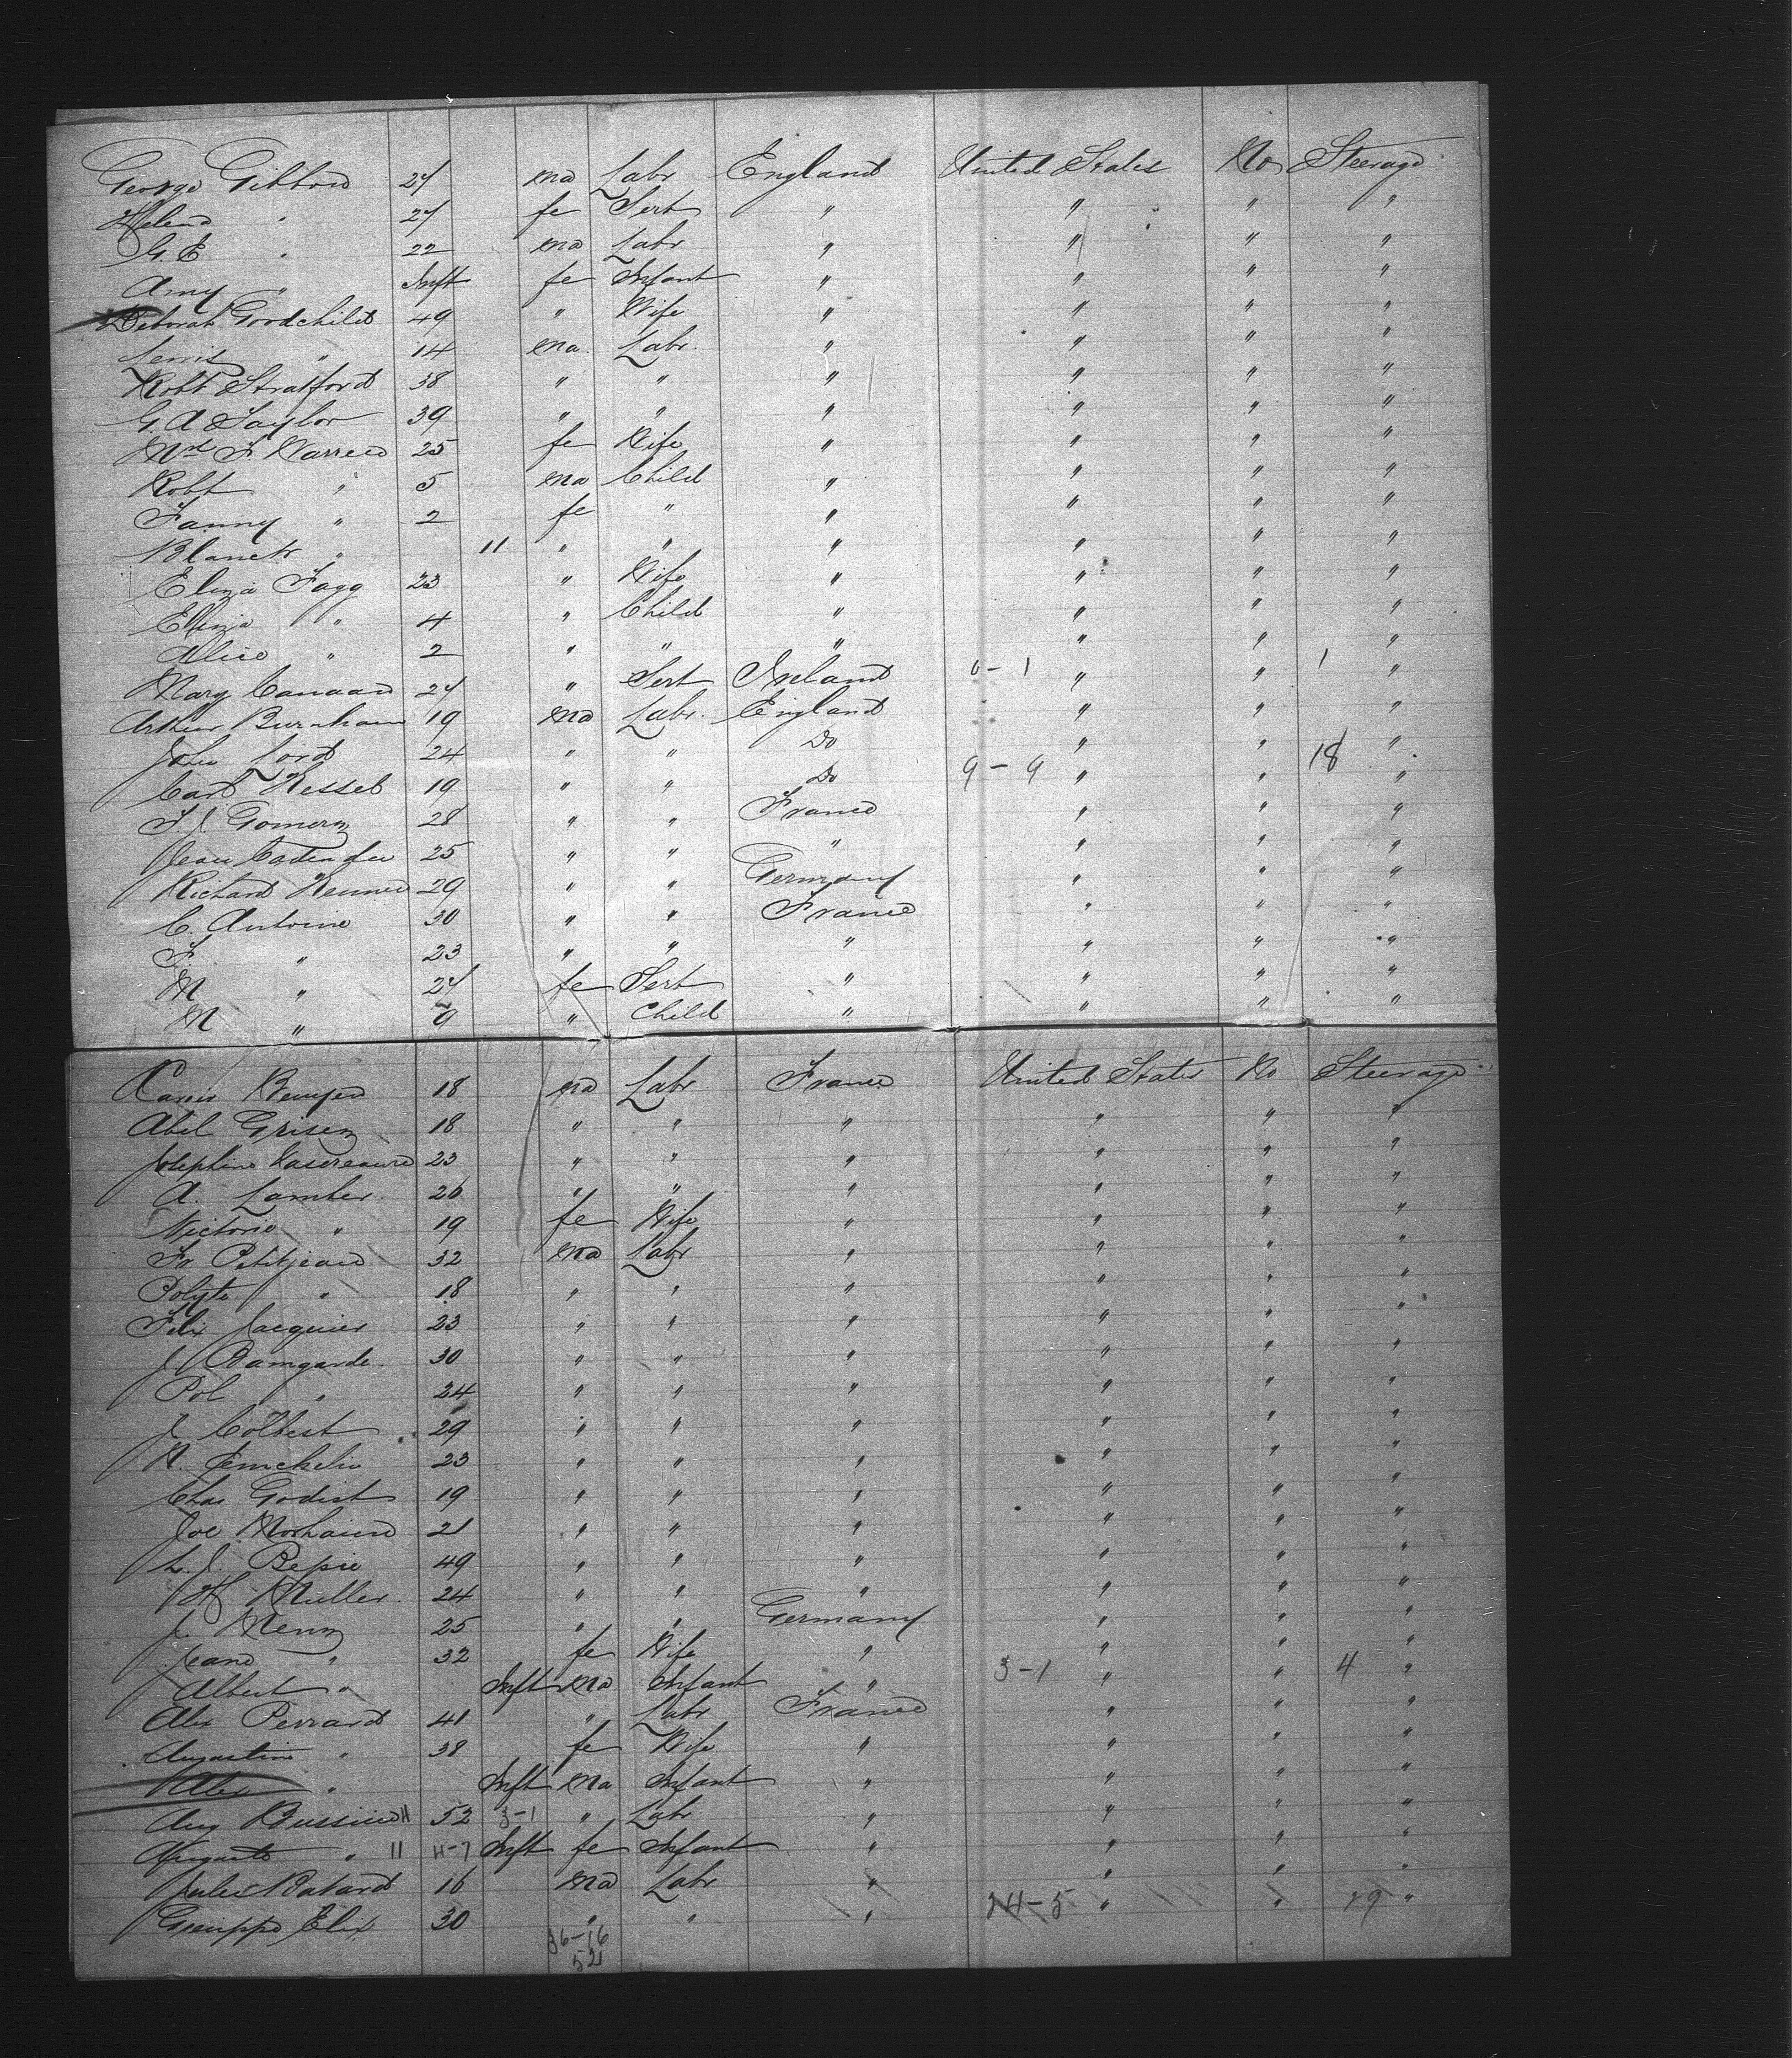 George Gibbon 27 ma Labr England United States No Steerage
Helena " 27 fe Sert " " " "
G. E " 22 ma Labr " " " "
Amy " Inft fe Infant " " " "
Deborah Goodchild 49 " Wife " " " "
Lewis " 14 ma Labr " " " "
Robt Stratford 38 " " " " " "
G. A Taylor 39 " " " " " "
Mrs F. Warren 25 fe Wife " " " "
Robt " 5 ma Child " " " "
Fanny " 2 fe " " " " "
Blanch " 11 " " " " " "
Eliza Fagg 23 " Wife " " " "
Eliza " 4 " Child " " " "
Alice " 2 " " " " " "
Mary Canaan 27 " Sert Ireland 0-1 " " 1 "
Arthur Burnham 19 ma Labr. England " " "
John Lord 24 " " Do " " "
Carl Kessel 19 " " Do 9-9 " " 18 "
F. J. Gomerz 28 " " France " " "
Jean 25 " " " " " "
Richard 29 " " Germany " " "
C. Antoine 30 " " France " " "
F. " 23 " " " " " "
M " 27 fe Sert " " " "
M " 9 " Child " " " "
18 ma Labr France United States No Steerage
Abel Grisez 18 " " " " " "
Josephine 23 " " " " " "
A. Lamber 26 " " " " " "
Victorie " 19 fe Wife " " " "
Fr Petitjean 32 ma Labr " " " "
Polyte " 18 " " " " " "
Felix Jacquier 23 " " " " " "
J. Bamgarde 30 " " " " " "
Pol " 24 " " " " " "
J. Colbest 29 " " " " " "
23 " " " " " "
Chas Godist 19 " " " " " "
Joe 21 " " " " " "
L. J. Bepie 49 " " " " " "
H Muller 24 " " " " " "
J. Menz 25 " " Germany " " "
Jean " 32 fe Wife " " " "
Albert " Inft ma Infant " 3-1 " " 4 "
Alex Perrard 41 " Labr France " " "
Augustine " 38 fe Wife " " " "
Alex " Inft ma Infant " " " "
Aug 11 52 3-1 " Labr " " " "
" 11 11-7 Inft fe Infant " " " "
Jules Batard 16 ma Labr " " " "
Giuppe Elix 30 " " " 24-5 " " 29 "
36-16
52